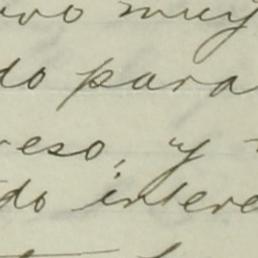 vo muy
do para
reso, y
do intere